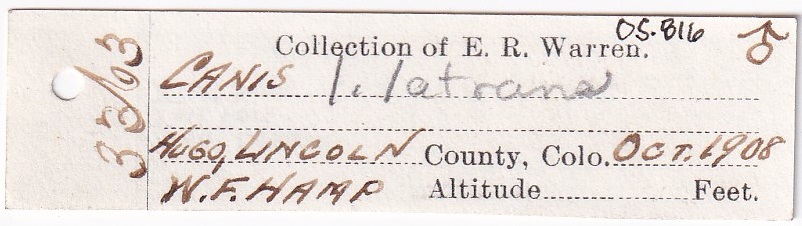 OS.816
Collection of E. R. Warren. ♂
CANIS l. latrans
HUGO, LINCOLN County, Colo. OCT. 1908
W.F. HAMP Altitude Feet.